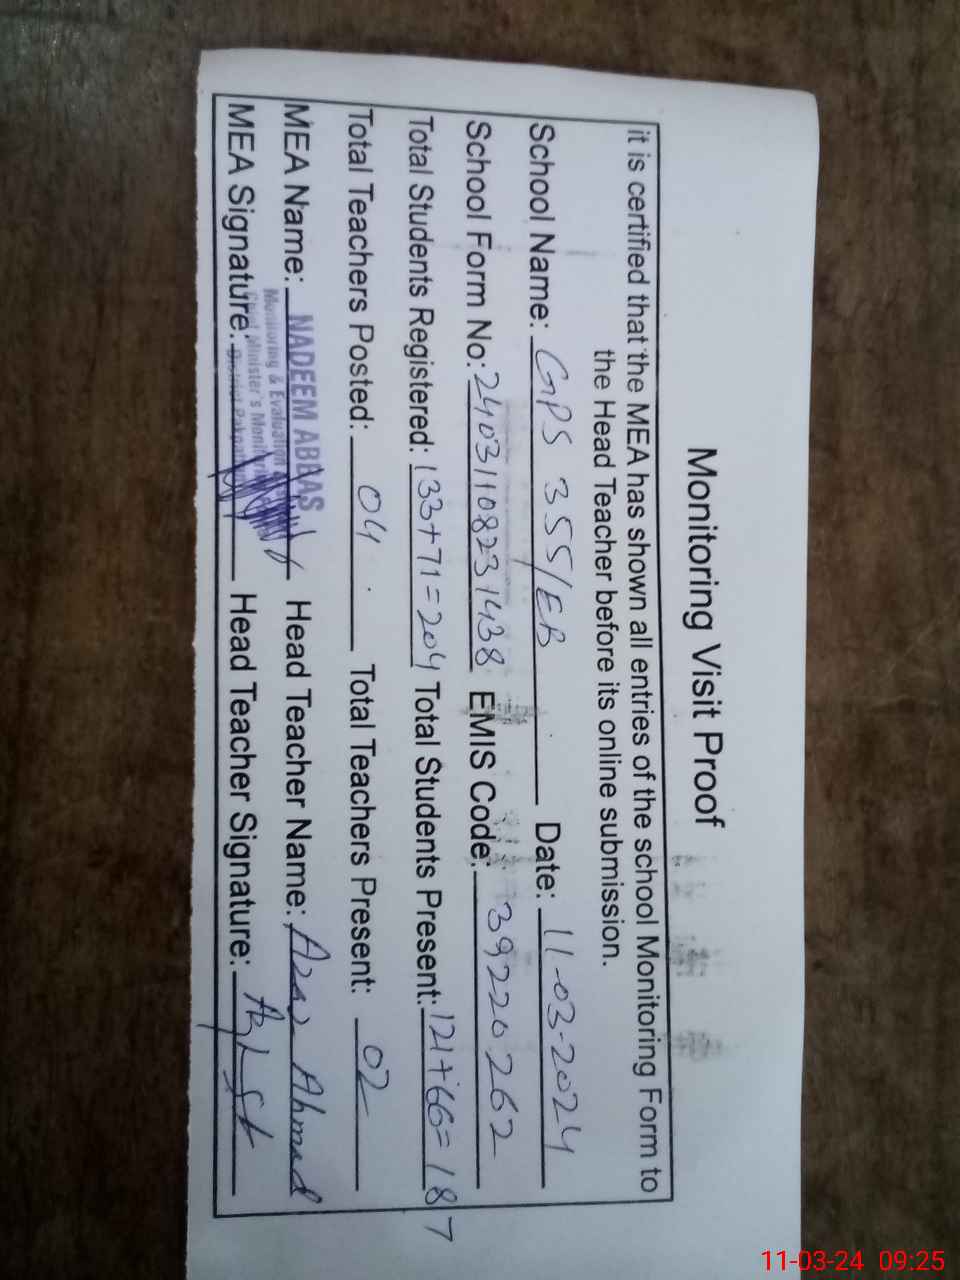 Monitoring Visit Proof
it is certified that the MEA has shown all entries of the school Monitoring Form to
the Head Teacher before its online submission.
School Name: GPS 355/EB Date: 11-03-2024
School Form No: 24031108231438 EMIS Code: 39220262
Total Students Registered: 133+71=204 Total Students Present: 121+66=187
Total Teachers Posted: 04 Total Teachers Present: 02
MEA Name: NADEEM ABBAS Head Teacher Name: Ahmad
Monitoring & Evaluation
Chief Minister's Monitoring
MEA Signature: District Pakpattan Head Teacher Signature:
11-03-24 09:25